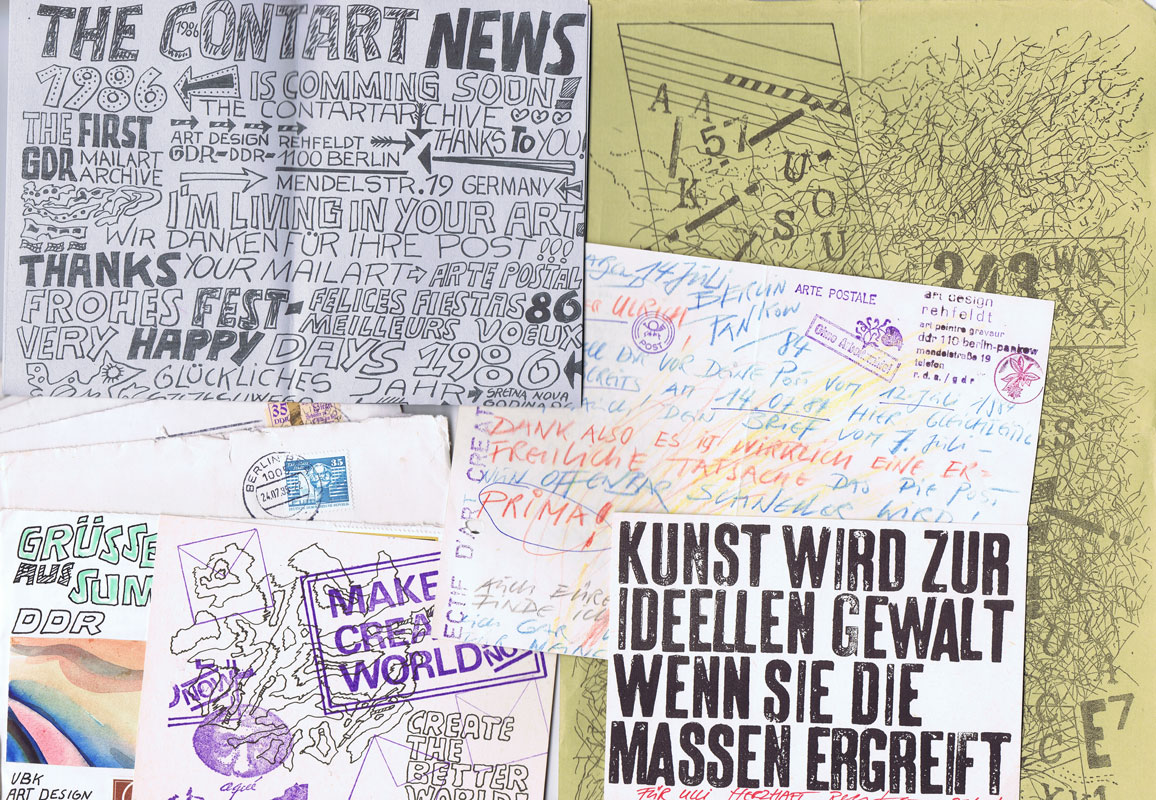 THE CONTART NEWS
1986
1986 IS COMMING SOON!
THE CONTARTARCHIVE
THE FIRST
GDR MAILART
ARCHIVE
ART DESIGN REHFELDT
GDR-DDR-1100 BERLIN
THANKS TO YOU!
MENDELSTR.19 GERMANY
I'M LIVING IN YOUR ART
WIR DANKEN FÜR IHRE POST!!!
THANKS YOUR MAILART ARTE POSTAL
FROHES FEST- FELICES FIESTAS 86
MEILLEURS VOEUX
VERY HAPPY DAYS 1986
GLÜCKLICHES
JAHR
SRETNA NOVA
GODINA
A A
5 7
K
U
S O
U
243
14. JULI
BERLIN
PANKOW
84
ULRICH,
POST
ARTE POSTALE
art design
rehfeldt
art peintre graveur
ddr 110 berlin-pankow
mendelstraße 19
telefon
r.d.a. / gdr
DU VOR DEINE POST VOM 12. JULI 1984
BEREITS, AM 14.07.84 HIER GLEICHZEITIG
DEIN BRIEF VOM 7. JULI-
DANK ALSO ES IST WIRKLICH EINE ER=
FREULICHE TATSACHE DAS DIE POST
NUN OFFENBAR SCHNELLER WIRD!
PRIMA!
AUCH EURE
FINDE ICH
GAR
MEINE
ECTIF D'ART CREAT
35
DDR
BERLIN
24.07.
35
GRÜSSE
AUS
SUM
DDR
UBK
ART DESIGN
MAKE
CREA
WORLD
NOW
NOW
CREATE
THE
BETTER
WORLD!
KUNST WIRD ZUR
IDEELLEN GEWALT
WENN SIE DIE
MASSEN ERGREIFT
FÜR ULLI HERZHAFT
E7